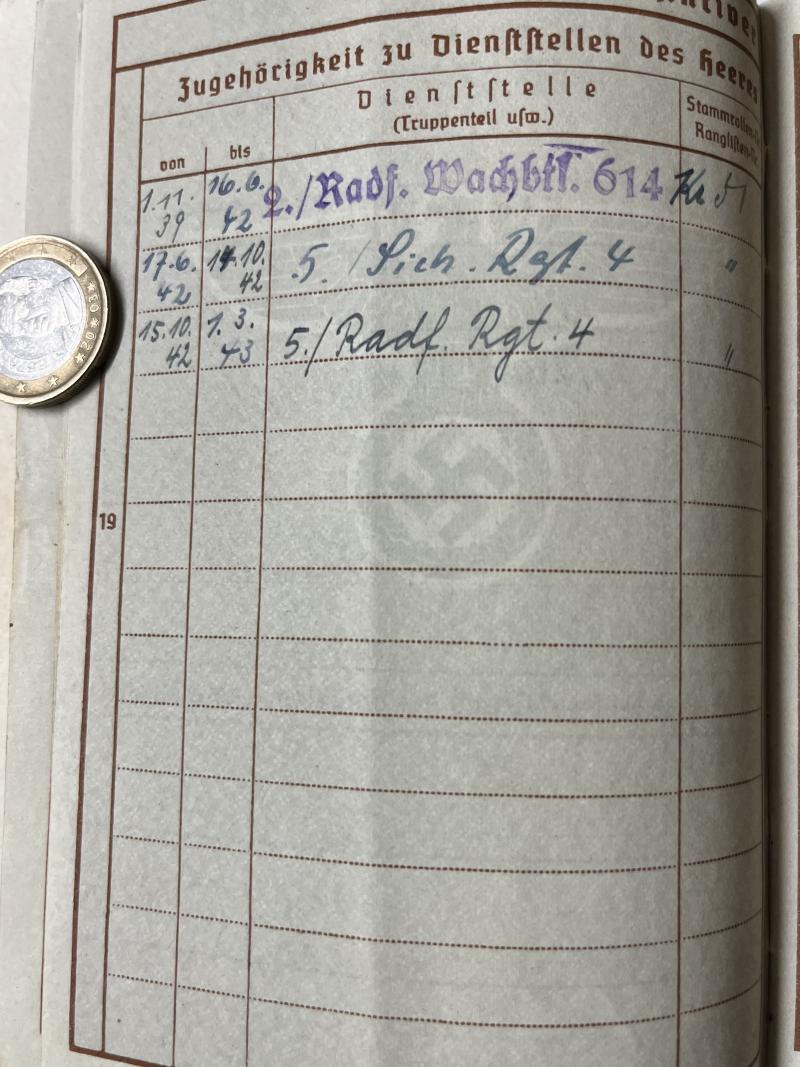 Zugehörigkeit zu Dienststellen des Heeres
von
bis
Dienststelle
(Truppenteil usw.)
Stammrollen-
Ranglisten-
1.11. 39
16.6. 42
2./Radf. Wachbtl. 614
Kr 51
17.6. 42
14.10. 42
5./Sich. Rgt. 4
"
15.10. 42
1.3. 43
5./Radf. Rgt. 4
"
19